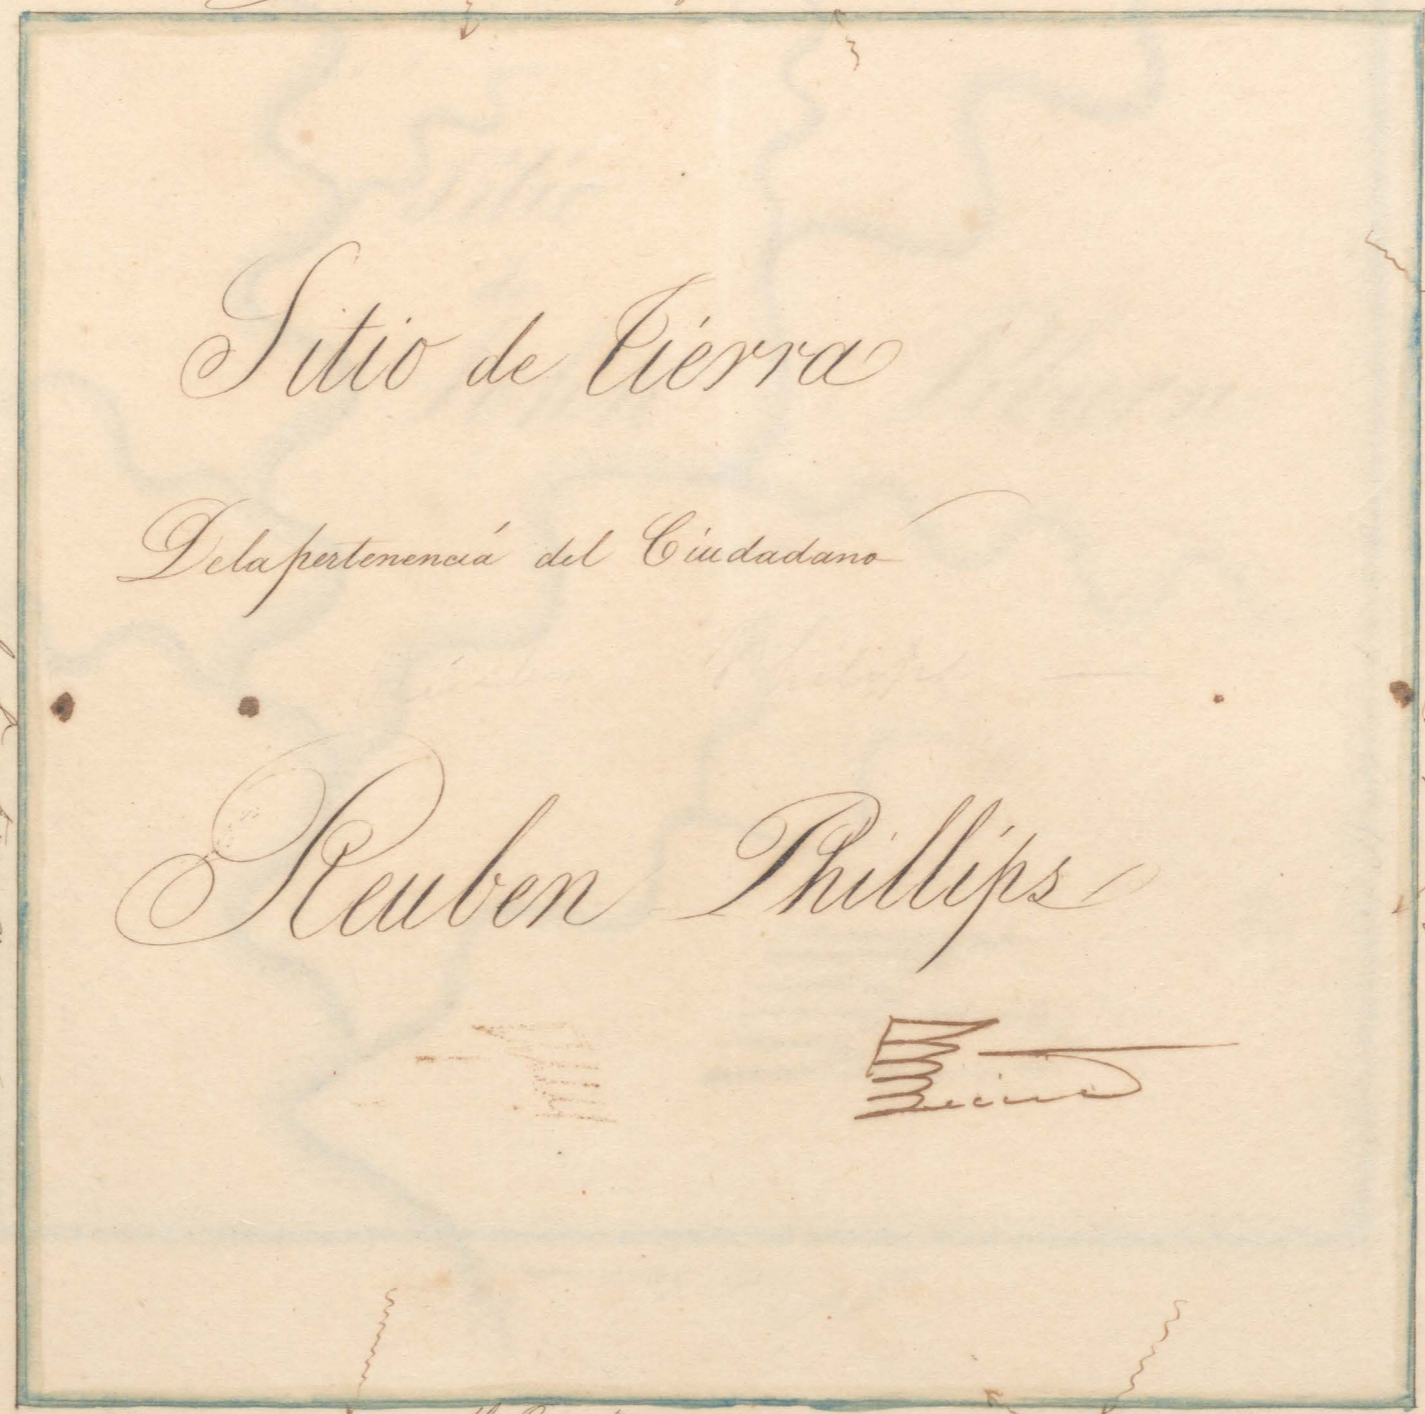 Sitio de Tierra
De la pertenencia del Ciudadano
Reuben Phillips